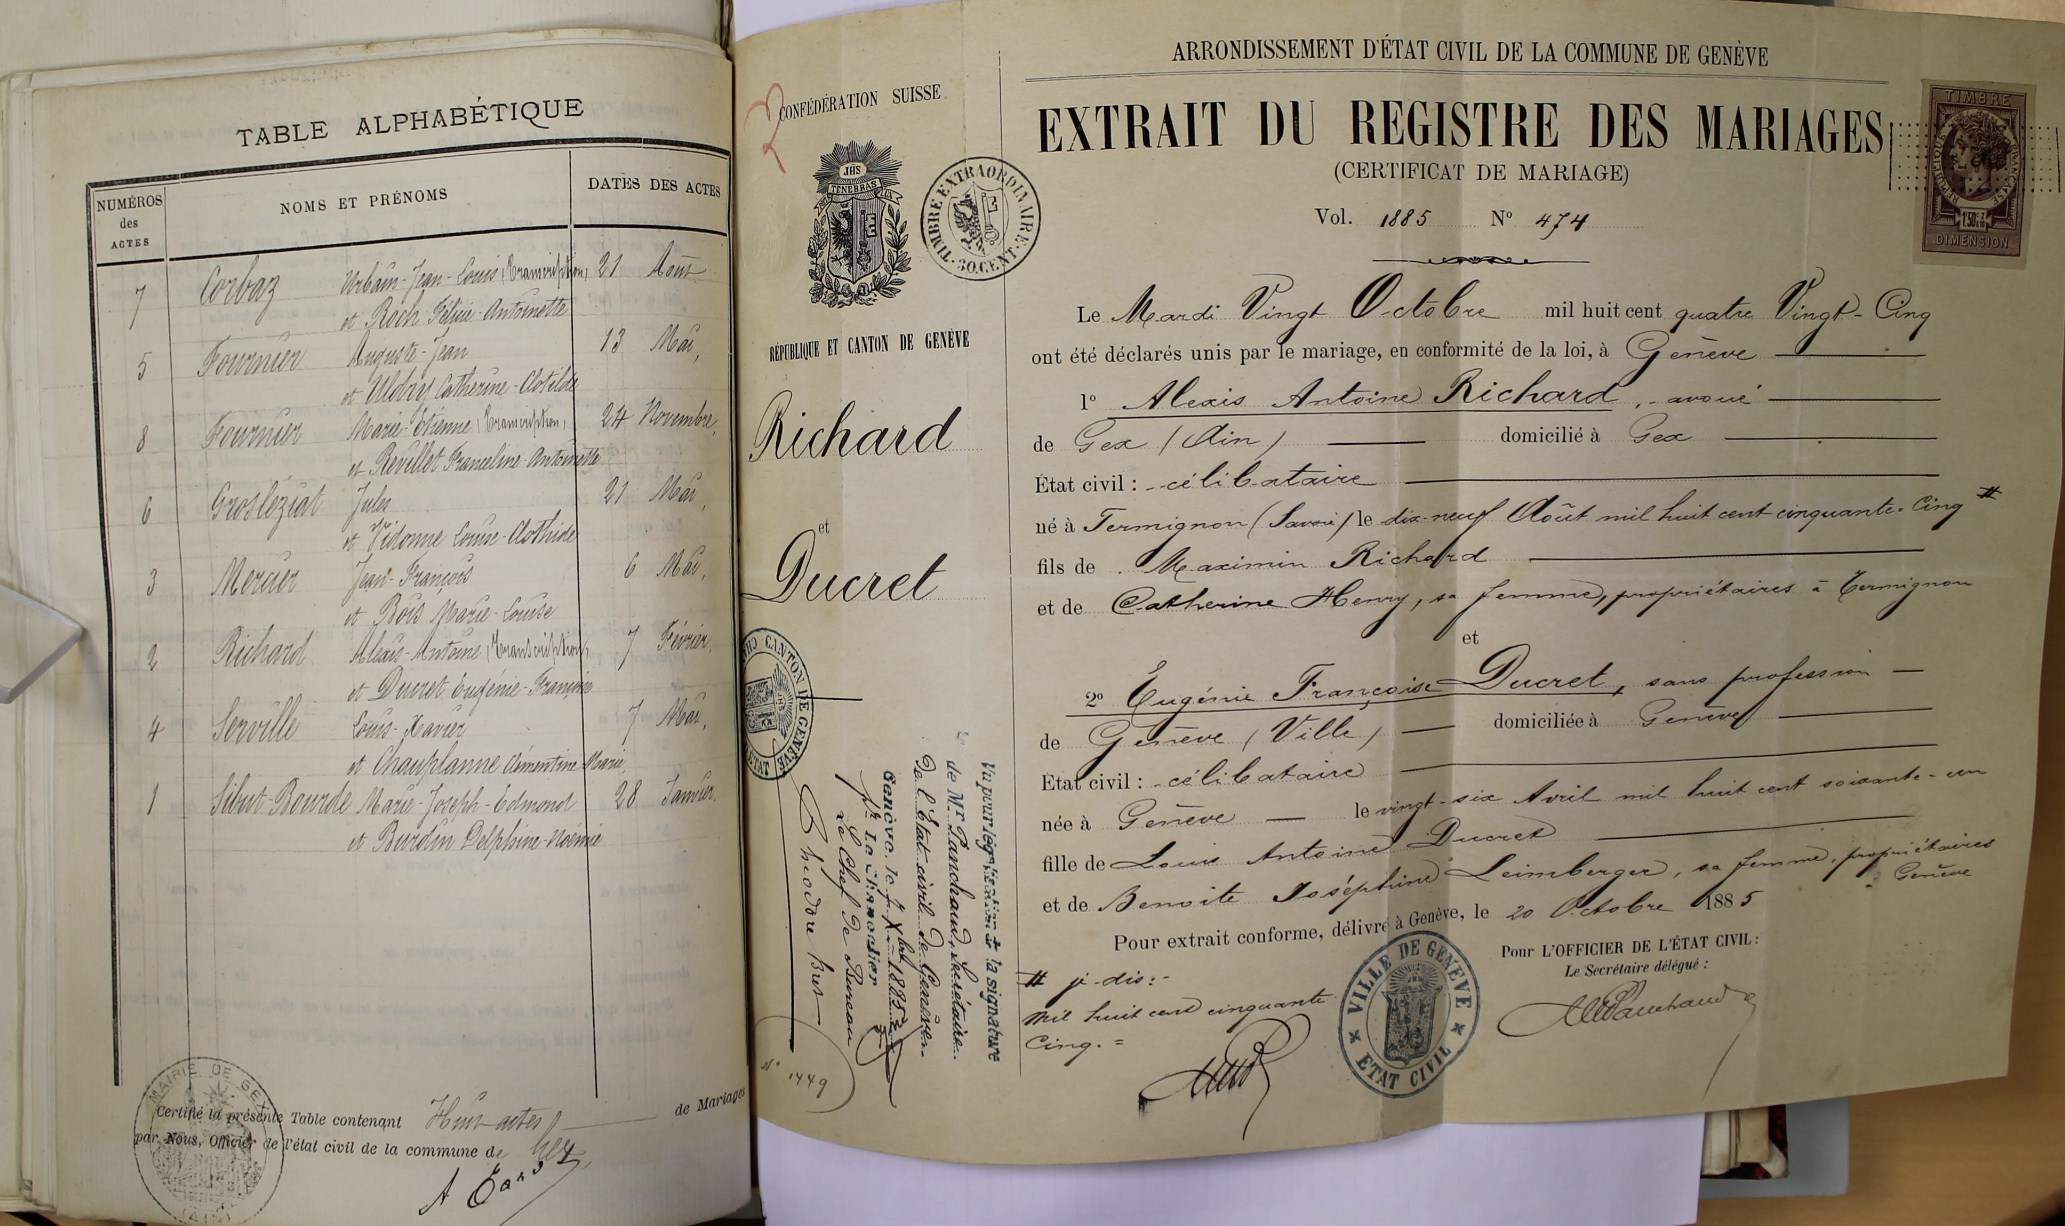 TABLE ALPHABÉTIQUE
NUMÉROS des ACTES
NOMS ET PRÉNOMS
DATES DES ACTES
7 Corbaz Urbain-Jean-Louis (Transcription) 21 Août
et Roch Félicie-Antoinette
5 Fournier Auguste-Jean 13 Mai,
et Catherine-Clotilde
8 Fournier Marie-Etienne (Transcription) 24 Novembre,
et Revillet Franceline-Antoinette
6 Grosléziat Jules 21 Mai,
et Vidonne Louise-Clothilde
3 Mercier Jean-François 6 Mai,
et Bois Marie-Louise
2 Richard Alexis-Antoine (Transcription) 7 Février,
et Ducret Eugénie-Françoise
4 Serville Louis-Xavier 7 Mai,
et Chauplanne Clémentine Marie,
1 Sibut-Bourde Marie-Joseph-Edmond 28 Janvier,
et Burdin Delphine-Noémie
MAIRIE DE GEX
(AIN)
Certifié la présente Table contenant Huit actes de Mariages
par Nous, Officier de l'état civil de la commune de Gex,
CONFÉDÉRATION SUISSE
JHS
TENEBRAS
TIMBRE EXTRAORDINAIRE
30 CENT.
RÉPUBLIQUE ET CANTON DE GENÈVE
Richard
et
Ducret
CANTON DE GENÈVE
Vu pour légalisation de la signature
de Mr Panchaud, Secrétaire
de l'État civil de Genève.
Genève, le 7 Xbre 1885
pr Le Chancelier
Le Chef de Bureau
Théodore
No 1449
ARRONDISSEMENT D'ÉTAT CIVIL DE LA COMMUNE DE GENÈVE
EXTRAIT DU REGISTRE DES MARIAGES
(CERTIFICAT DE MARIAGE)
Vol. 1885 No 474
TIMBRE
RÉPUBLIQUE FRANÇAISE
1F50c
DIMENSION
Le Mardi Vingt Octobre mil huit cent quatre Vingt-Cinq
ont été déclarés unis par le mariage, en conformité de la loi, à Genève
1o Alexis Antoine Richard, avoué
de Gex (Ain) domicilié à Gex
État civil : célibataire
né à Termignon (Savoie) le dix-neuf Août mil huit cent cinquante-Cinq #
fils de Maximin Richard
et de Catherine Henry, sa femme, propriétaires à Termignon
et
2o Eugénie Françoise Ducret, sans profession
de Genève (Ville) domiciliée à Genève
État civil : célibataire
née à Genève le vingt-six Avril mil huit cent soixante-un
fille de Louis Antoine Ducret
et de Benoite Joséphine Leimberger, sa femme, propriétaires
à Genève
Pour extrait conforme, délivré à Genève, le 20 Octobre 1885
Pour L'OFFICIER DE L'ÉTAT CIVIL :
Le Secrétaire délégué :
Panchaud
# je dis :-
mil huit cent cinquante
Cinq. =
VILLE DE GENÈVE
ETAT CIVIL